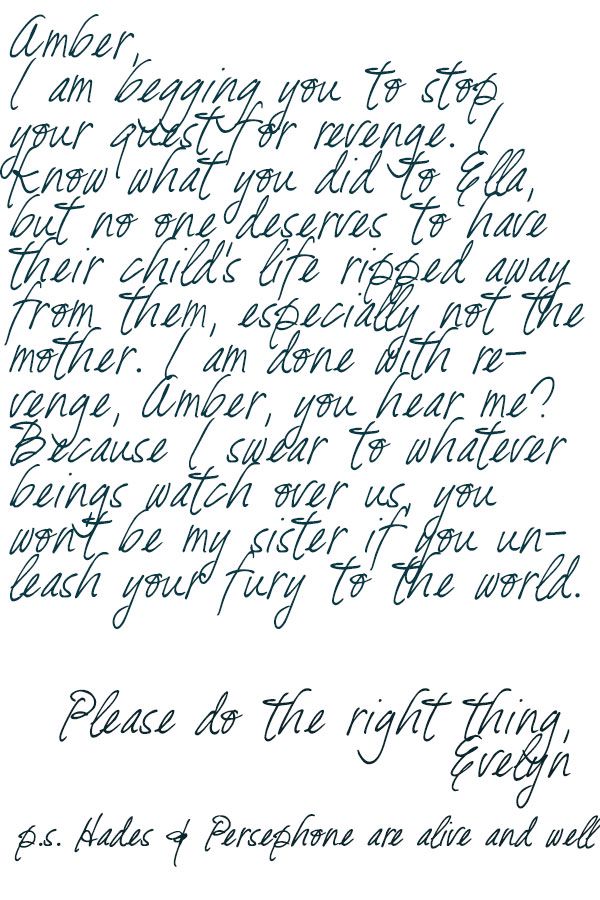 Amber,
I am begging you to stop
your quest for revenge. I
know what you did to Ella,
but no one deserves to have
their child's life ripped away
from them, especially not the
mother. I am done with re-
venge, Amber, you hear me?
Because I swear to whatever
beings watch over us, you
won't be my sister if you un-
leash your fury to the world.
Please do the right thing,
Evelyn
p.s. Hades & Persephone are alive and well